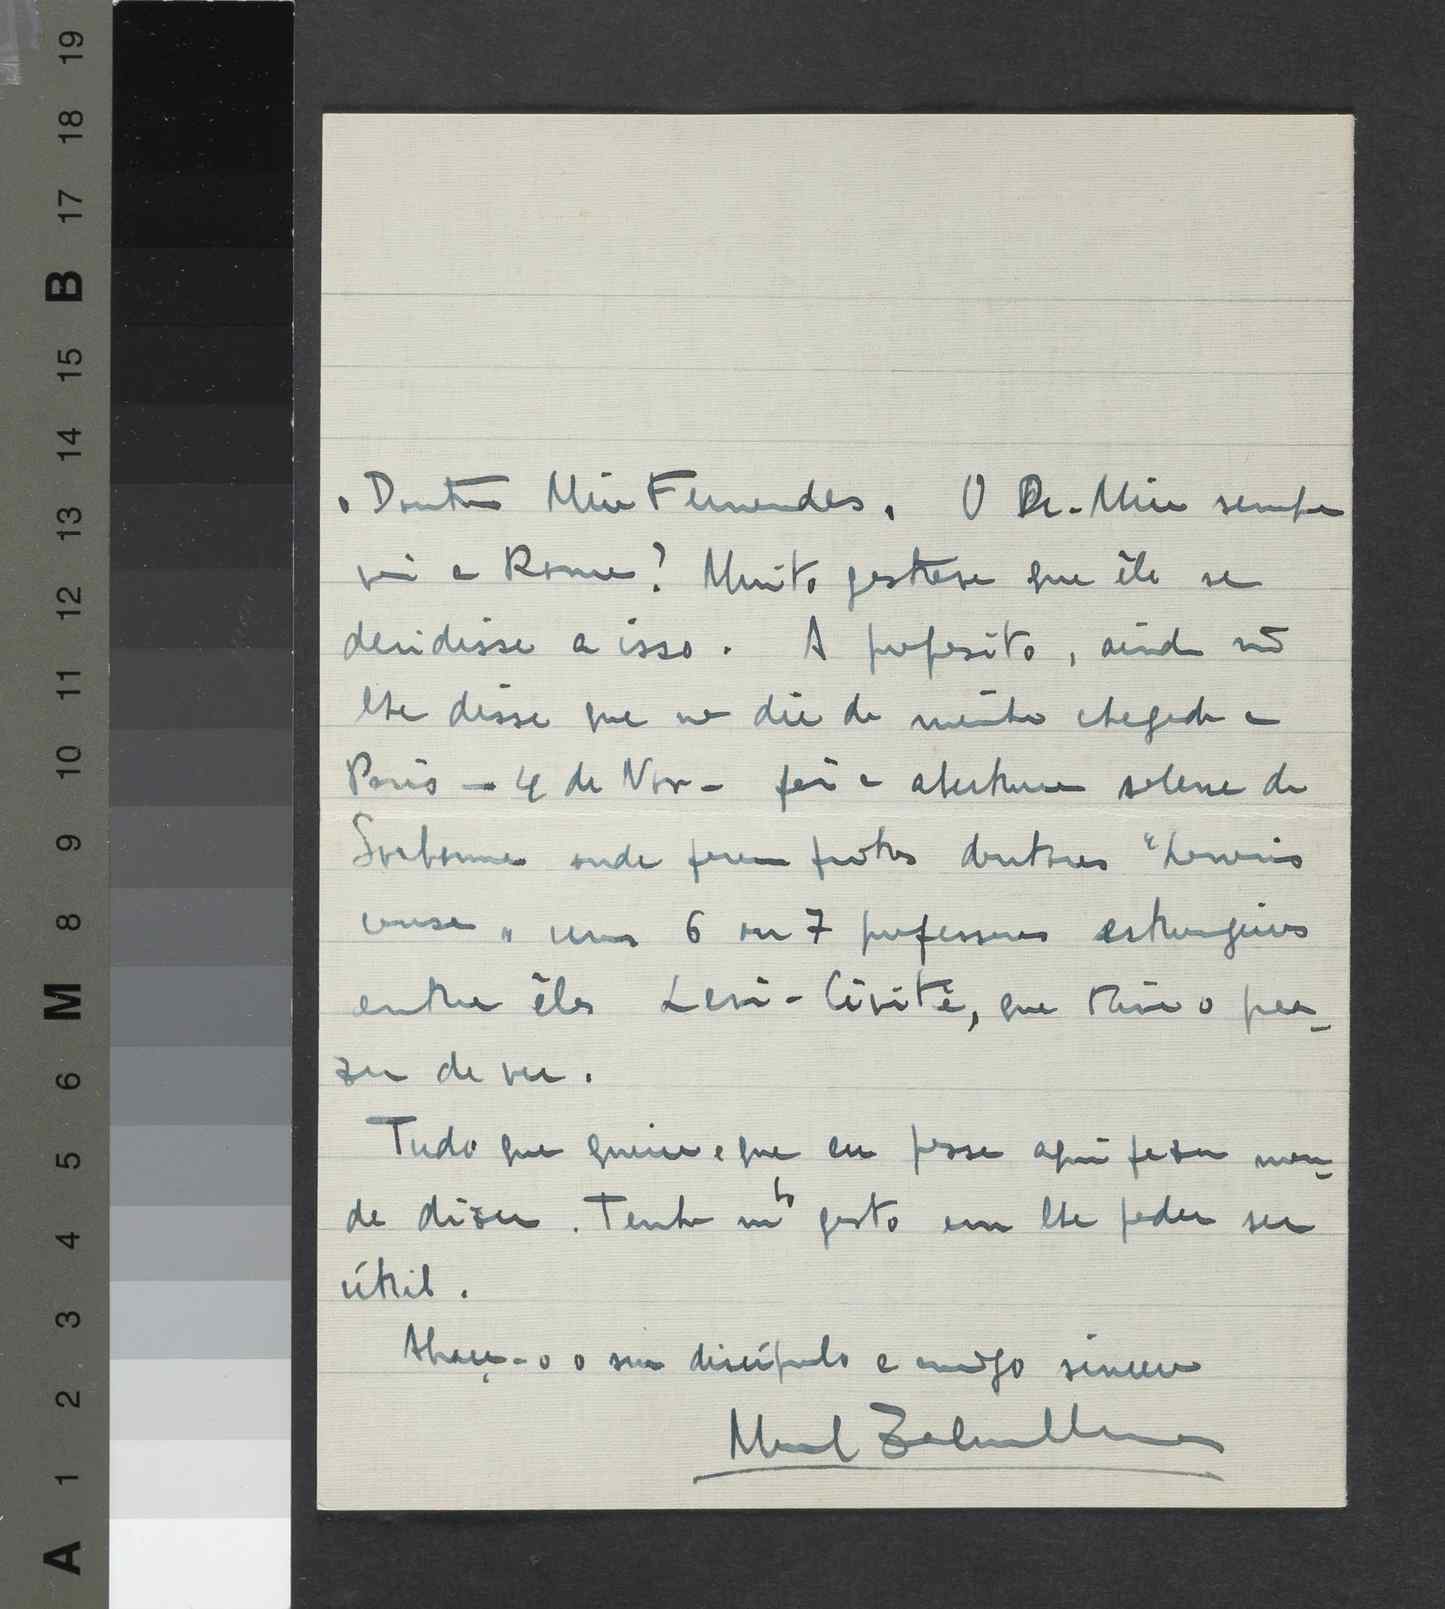 19
18
17
B
15
14
13
12
11
10
9
8
M
6
5
4
3
2
1
A
o Doutor Mira Fernandes. O Dr. Mira sempre
vai a Roma? Muito gostava que êle se
decidisse a isso. A proposito, ainda não
lhe disse que no dia da minha chegada a
Paris – 4 de Nov – foi a abertura solene da
Sorbonne onde foram feitos doutores "honoris
causa" uns 6 ou 7 professores estrangeiros
entre êles Levi-Civitá, que tive o pra-
zer de ver.
Tudo que queira e que eu possa aqui fazer man-
de dizer. Tenho mto gosto em lhe poder ser
útil.
Abraça-o o seu discípulo e amigo sincero